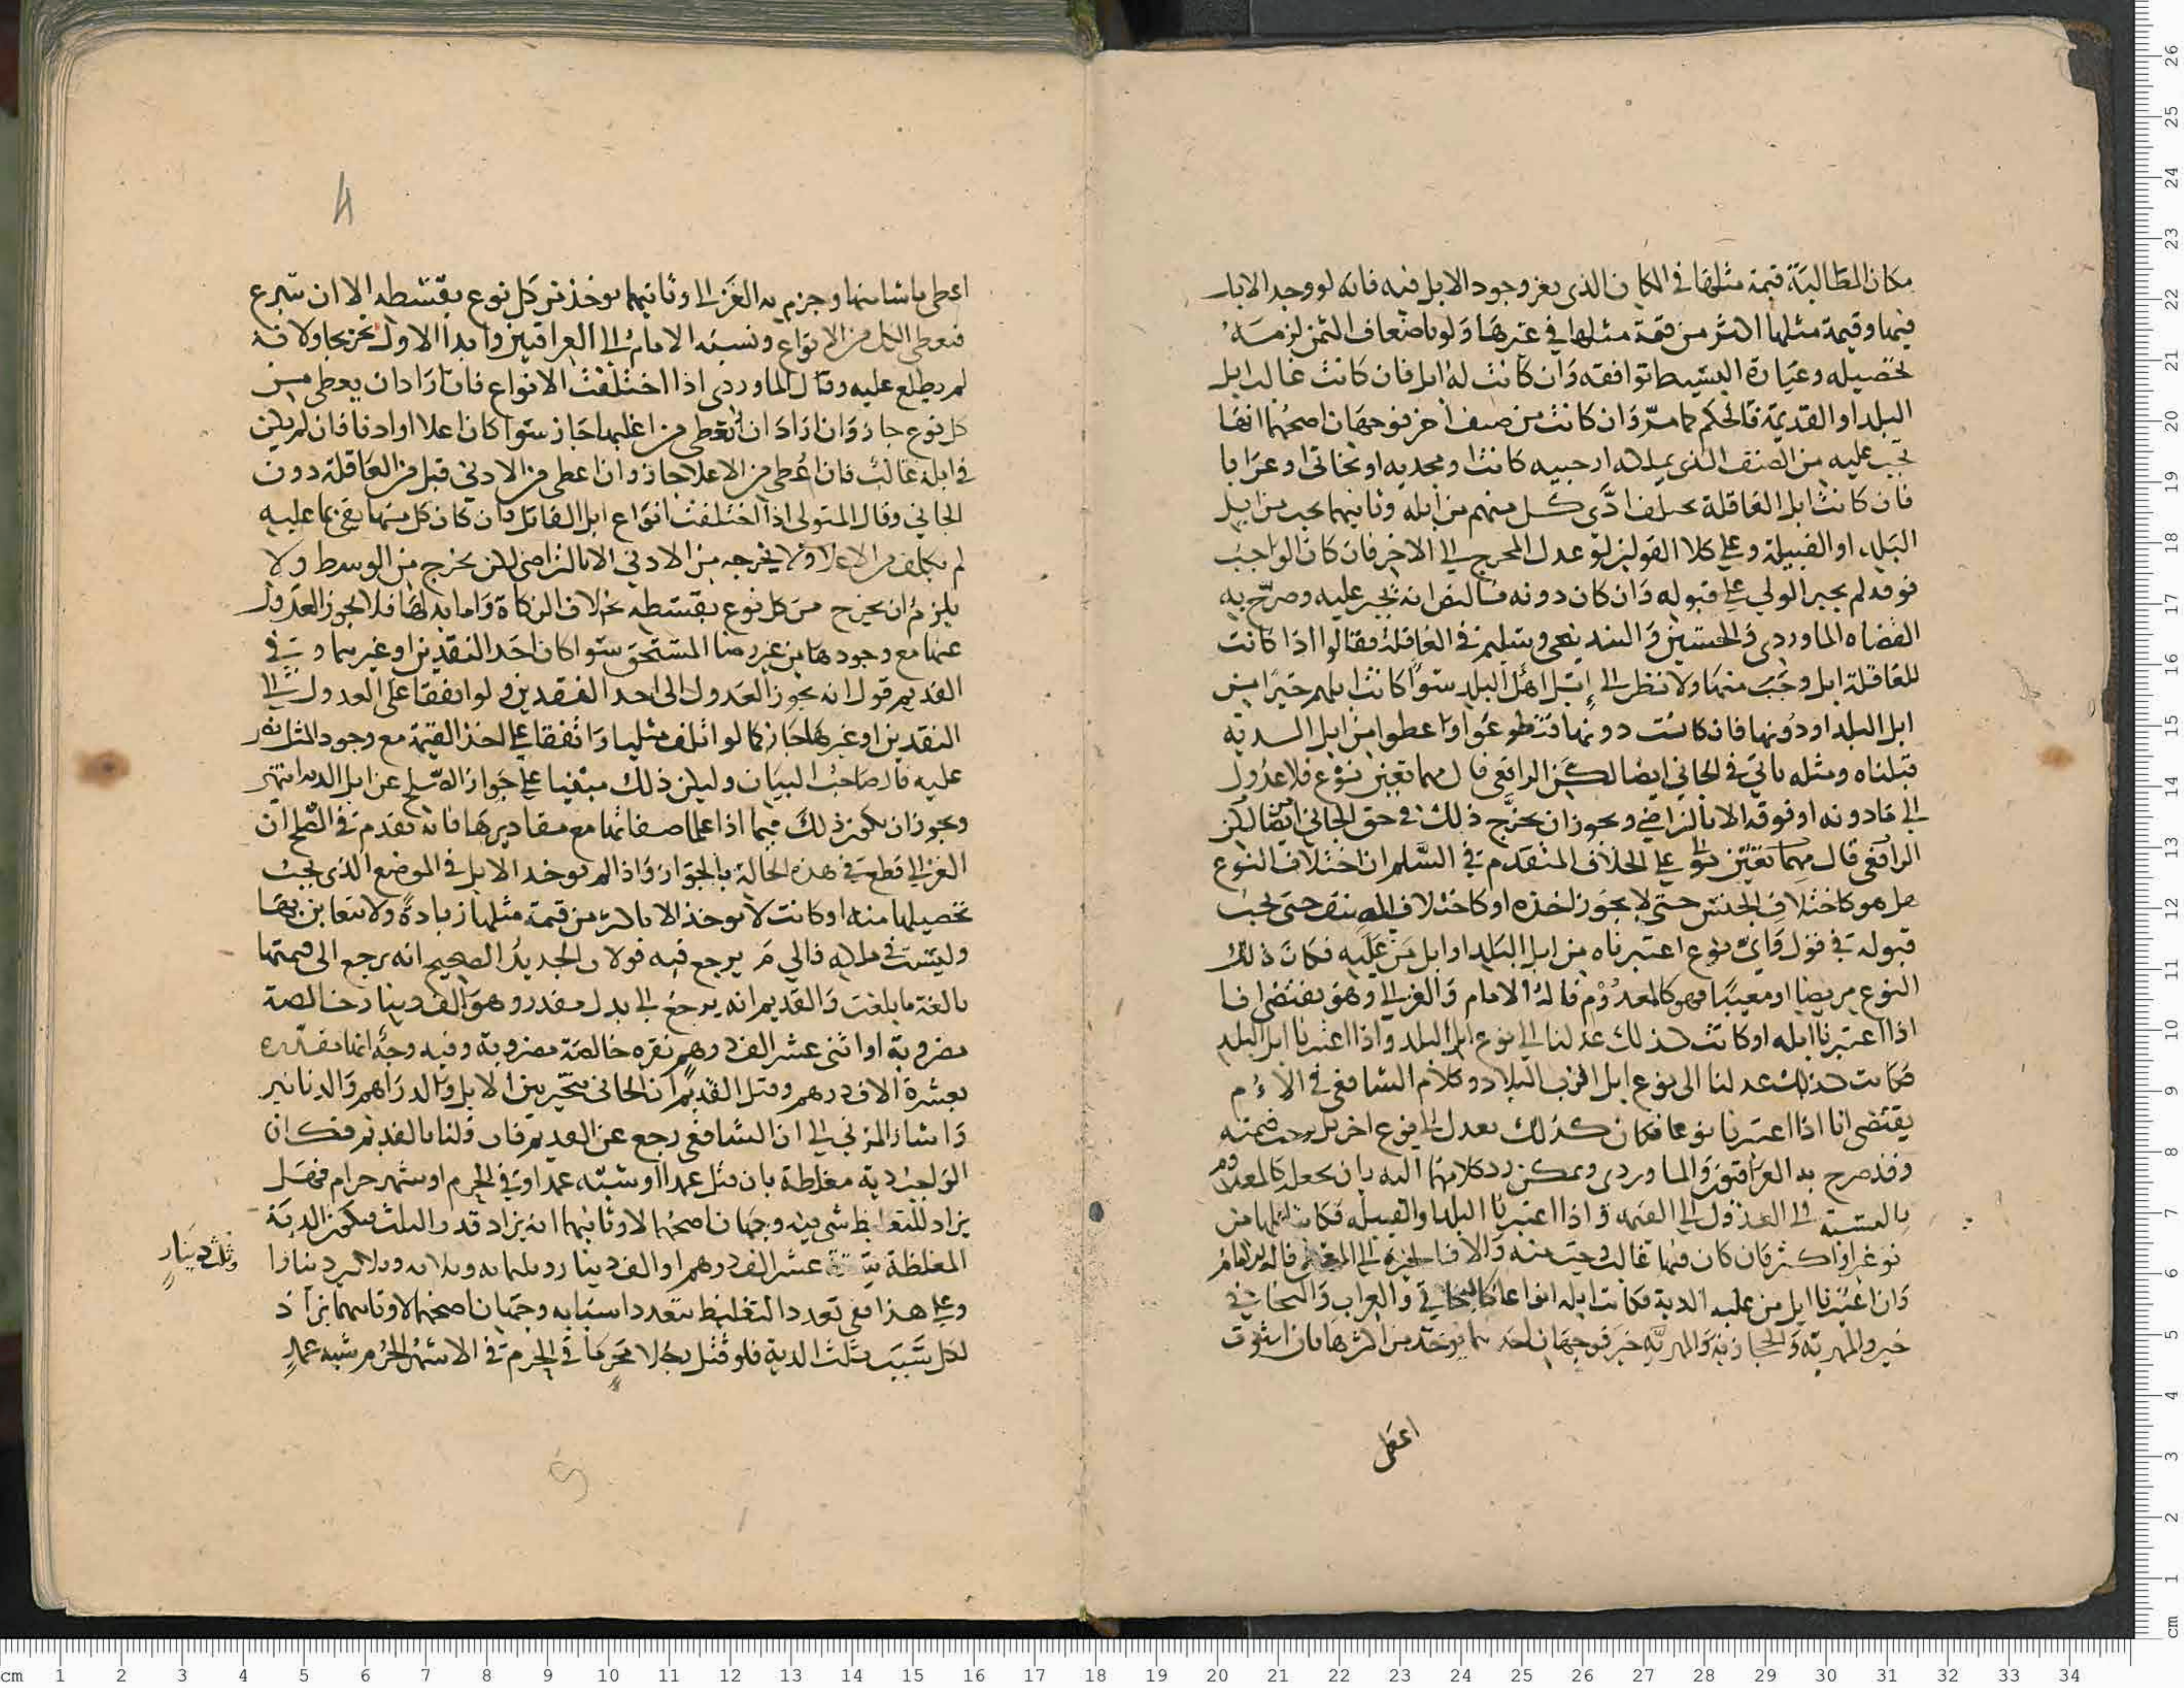 مكان المطالبة قيمة مثلها في المكان الذي يعز وجود الابل فيه فانه لو وجد الابل
فيها وقيمة مثلها اكثر من قيمة مثلها في غيرها ولو باضعاف الثمن لزمه
تحصيله وعبارة البسيط توافقه وان كانت له ابل فان كانت غالب ابل
البلد او القديمة فالحكم كما مر وان كانت من صنف اخر فوجهان اصحهما انها
تجب عليه من الصنف الذي يملكه ارحبيه كانت او مجديه او بخاتي او عرابا
فان كانت ابل العاقلة تختلف ادى كل منهم من ابله وثانيهما يجب من ابل
البلد او القبيلة وعلى كلا القولين لو عدل المخرج الى الاخر فان كان الواجب
فوقه لم يجبر الولي على قبوله وان كان دونه فالنص انه يجبر عليه وصرح به
القضاه الماوردي والحسين والبندنيجي وسليم في العاقلة فقالوا اذا كانت
للعاقلة ابل وجبت منها ولا نظر الى ابل اهل البلد سوا كانت ابلهم خيرا من
ابل البلد او دونها فان كانت دونها فتطوعوا واعطوا من ابل البلد
قبلناه ومثله ياتي في الجاني ايضا لكن الرافعي قال مهما تعين نوع فلا عدول
الى ما دونه او فوقه الا بالتراضي ويجوز ان يخرج ذلك في حق الجاني ايضا لكن
الرافعي قال مهما تعين نوع على الخلاف المتقدم في السلم ان اختلاف النوع
هل هو كاختلاف الجنس حتى لا يجوز اخذه او كاختلاف الصنف حتى يجب
قبوله في قول واي نوع اعتبرناه من ابل البلد او ابل من عليه فكان ذلك
النوع مريضا او معيبا فهو كالمعدوم قاله الامام والغزالي وهو يقتضي انا
اذا اعتبرنا ابله وكانت كذلك عدلنا الى نوع ابل البلد واذا اعتبرنا ابل البلد
فكانت كذلك عدلنا الى نوع ابل اقرب البلاد وكلام الشافعي في الام
يقتضي انا اذا اعتبرنا نوعا فكان كذلك لا يعدل الى نوع اخر بل قيمته
وقد صرح به العراقيون والماوردي ويمكن رد كلامهما اليه بان يجعل كالمعدوم
بالنسبة الى العدول الى القيمه واذا اعتبرنا البلد او القبيله فكانت ابلها من
نوعين او اكثر فان كان فيها غالب وجبت منه والا فالخيره الى المعطي قاله الامام
وان اعتبرنا ابل من عليه الدية فكانت ابله انواعا كالبخاتي والعراب والبخاتي
خير والمهرية والحجازية والمهرية خير فوجهان احدهما يوخذ من اكثرها فان استوت
اعطى
اعطى ما شا منها وجزم به الغزالي وثانيهما يوخذ من كل نوع بقسطه الا ان يتبرع
فيعطي الكل من الانواع ونسبه الامام الى العراقيين وابدا الاول تخريجا ولا فه
لم يطلع عليه وقال الماوردي اذا اختلفت الانواع فان اراد ان يعطي من
كل نوع جاز وان اراد ان يعطي من اغلبها جاز سوا كان اعلا او ادنا فان لم يكن
في ابله غالب فان اعطى من الاعلا جاز وان اعطى من الادنى قبل من العاقلة دون
الجاني وقال المتولي اذا اختلفت انواع ابل القاتل فان كان كل منها يفي بما عليه
لم يكلف من الاعلا ولا يخرجه من الادنى الا بالتراضي لكن يخرج من الوسط ولا
يلزم ان يخرج من كل نوع بقسطه بخلاف الزكاة واما بدلها فلا يجوز العدول
عنها مع وجودها من غير رضا المستحق سوا كان احد النقدين او غيرهما وفي
القديم قول انه يجوز العدول الى احد النقدين ولو اتفقا على العدول الى
النقدين او غيرهما جاز كما لو اتلف مثليا واتفقا على اخذ القيمة مع وجود المثل
عليه قال صاحب البيان وليكن ذلك مبنيا على جواز الصلح عن ابل الديه انتهى
ويجوز ان يكون ذلك فيما اذا علما صفاتها مع مقاديرها فانه تقدم في الصلح ان
الغزالي قطع في هذه الحالة بالجواز واذا لم توجد الابل في الموضع الذي يجب
تحصيلها منه او كانت لا توخذ الا باكثر من قيمة مثلها زيادة ولا يتغابن بها
وليست في ملكه فالى م يرجع فيه قولان الجديد الصحيح انه يرجع الى قيمتها
بالغة ما بلغت والقديم انه يرجع الى بدل مقدر وهو الف دينار خالصة
مضروبة او اثنى عشر الف درهم نقره خالصة مضروبة وفيه وجه انها مقدره
بعشرة الاف درهم وقيل القديم ان الجاني متخير بين الابل وبين الدراهم والدنانير
واشار المزني الى ان الشافعي رجع عن القديم فان قلنا بالقديم فكان
الواجب دية مغلظة بان قتل عمدا او شبه عمد او في الحرم او شهر حرام فهل
يزاد للتغليظ شي فيه وجهان اصحهما لا وثانيهما انه يزاد قدر الثلث فيكون الدية
المغلظة ستة عشر الف درهم او الف دينار وثلثمايه وثلاثه وثلاثين دينارا
وثلث دينار
وعلى هذا ففي تعدد التغليظ بتعدد اسبابه وجهان اصحهما لا وثانيهما يزاد
لكل سبب ثلث الدية فلو قتل رجلا محرما في الحرم في الاشهر الحرم شبه عمد